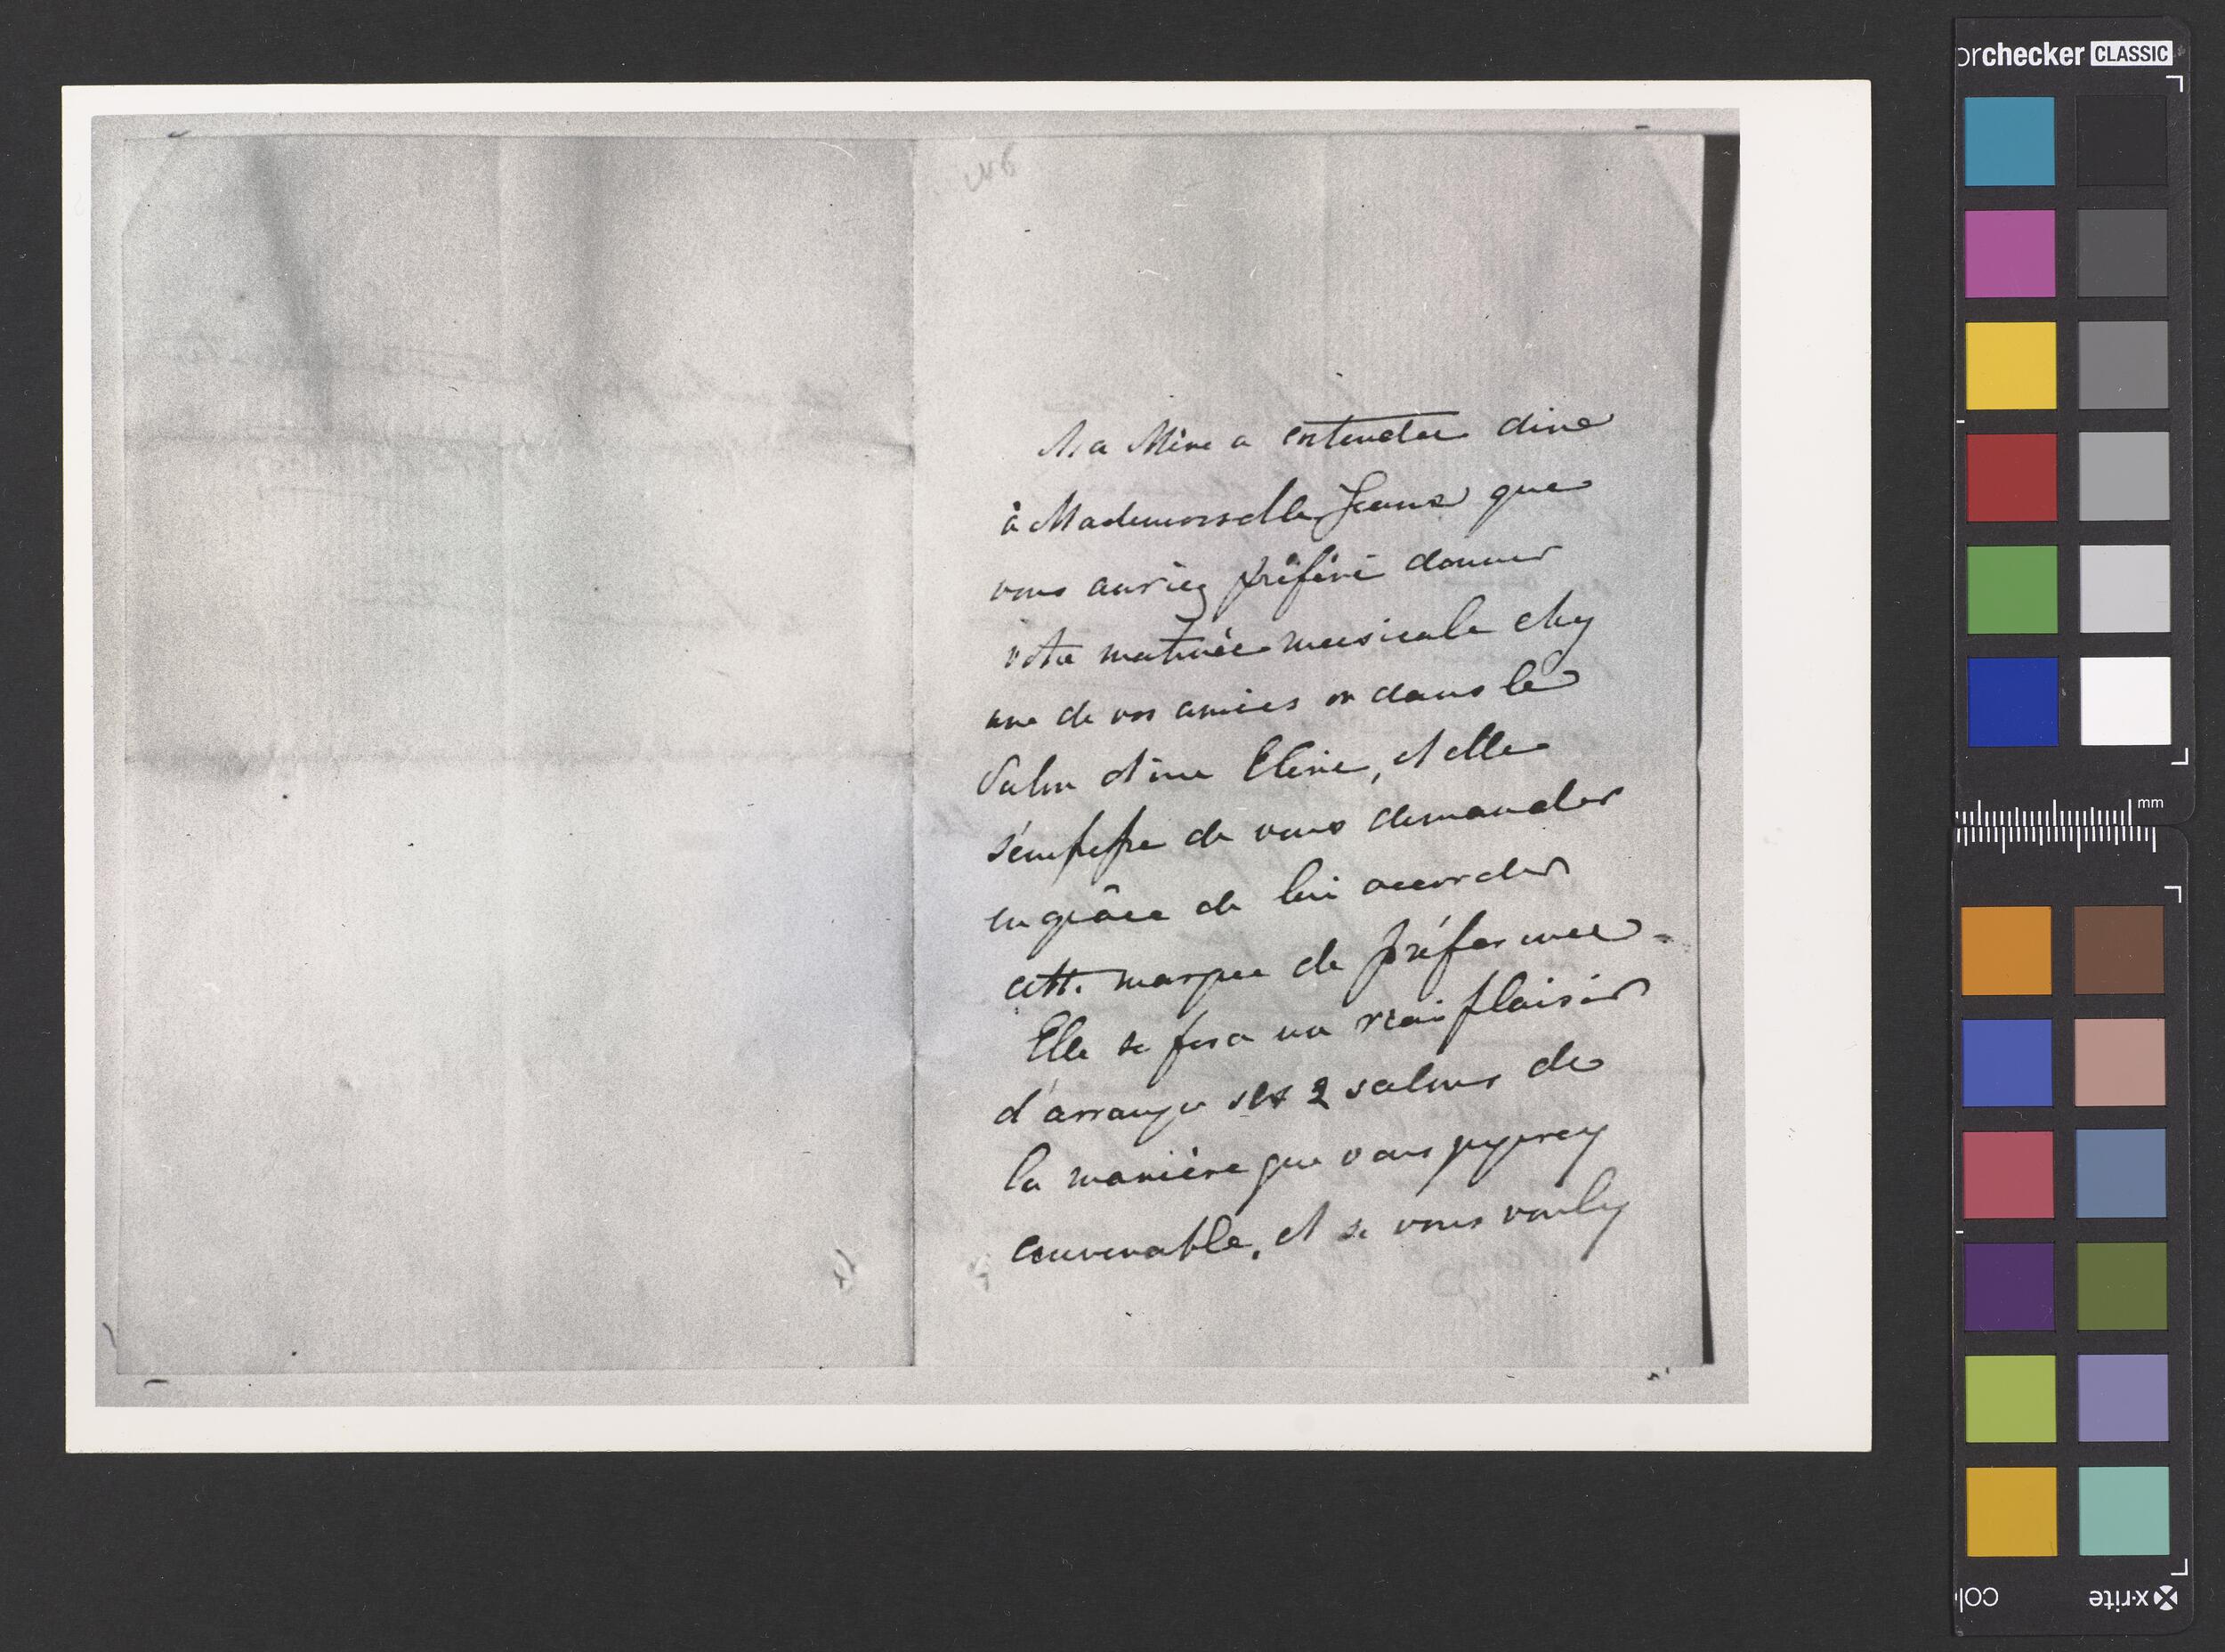 Ma Mère a entendu dire
à Mademoiselle Jeane que
vous auriez préféré donner
votre matinée musicale chez
une de vos amies ou dans le
Salon d'une Elève, et elle
s'empresse de vous demander
en grâce de lui accorder
cette marque de préférence -
Elle se fera un vrai plaisir
d'arranger ses 2 salons de
la manière que vous jugerez
convenable, et si vous voulez
orchecker CLASSIC
mm
x-rite
colo